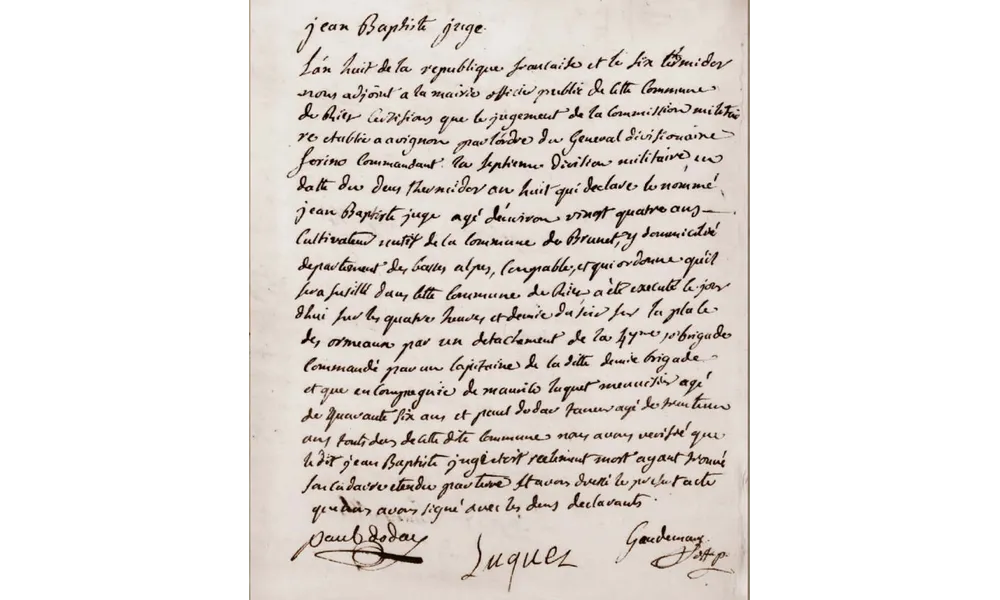 jean Baptiste juge.
L'an huit de la republique francaise et le six thermidor
nous adjoint a la mairie officier public de cette Commune
de Riez Certifions que le jugement de la Commission militai
re etablie a avignon par l'ordre du General divisionaire
ferino Commandant la septieme division militaire en
datte du deus thermidor an huit qui declare le nommé
jean Baptiste juge agé d'environ vingt quatre ans
Cultivateur natif de la Commune de Brunet, y domicilié
departement des basses alpes, Coupable, et qui ordonne qu'il
sera fusillé dans cette Commune de Riez a été executé le jour
d'hui sur les quatre heures et demie du soir sur la place
des ormeaux par un detachement de la brigade
Commandé par un Capitaine de la ditte demie brigade
et que en Compagnie de maurice luquet menuisier agé
de quarante six ans et paul dodar agé de trente un
ans touts deus de cette dite Commune nous avons verifié que
le dit jean Baptiste juge étoit reelement mort ayant trouvé
son cadavre etendu par terre et avons dressé le present acte
que nous avons signé avec les deus declarants.
paul dodar
Luquet
Gaudemar
adjt